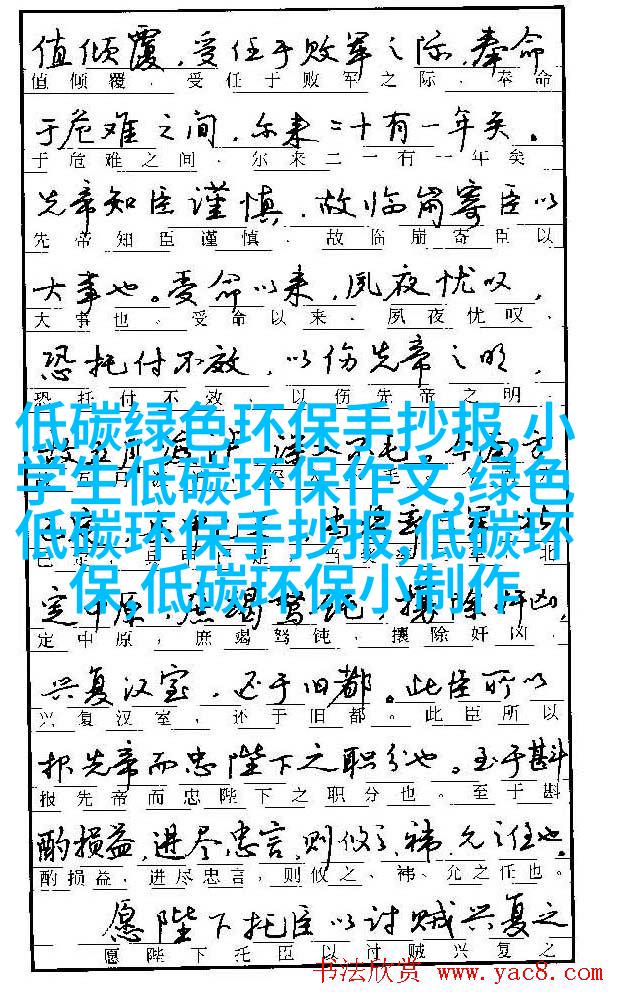 值倾覆，受任于败军之际，奉命
值倾覆，受任于败军之际，奉命
于危难之间，尔来二十有一年矣。
于危难之间，尔来二一有一年矣
先帝知臣谨慎，故临崩寄臣以
先帝知臣谨慎，故临崩寄臣以
大事也。受命以来，夙夜忧叹，
大事也。受命以来，夙夜忧叹，
恐托付不效，以伤先帝之明，
恐托付不效，以伤先帝之明，
低碳绿色环保手抄报,小
学生低碳环保作文,绿色
低碳环保手抄报,低碳环
保,低碳环保小制作
定中原，庶竭驽钝，攘除奸凶，
定中原，庶竭驽钝，攘除奸凶，
兴复汉室，还于旧都。此臣所以
兴复汉室，还于旧都。此臣所以
报先帝而忠陛下之职分也。至于斟
报先帝而忠陛下之职分也。至于斟
酌损益，进尽忠言，则攸之、祎、允之任也。
酌损益，进尽忠言，则攸之、祎、允之任也。
愿陛下托臣以讨贼兴复之
愿陛下托臣以讨贼兴复之
书法欣赏 www.yac8.com